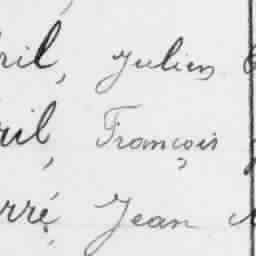 ril, Julien
ril, François
rré, Jean